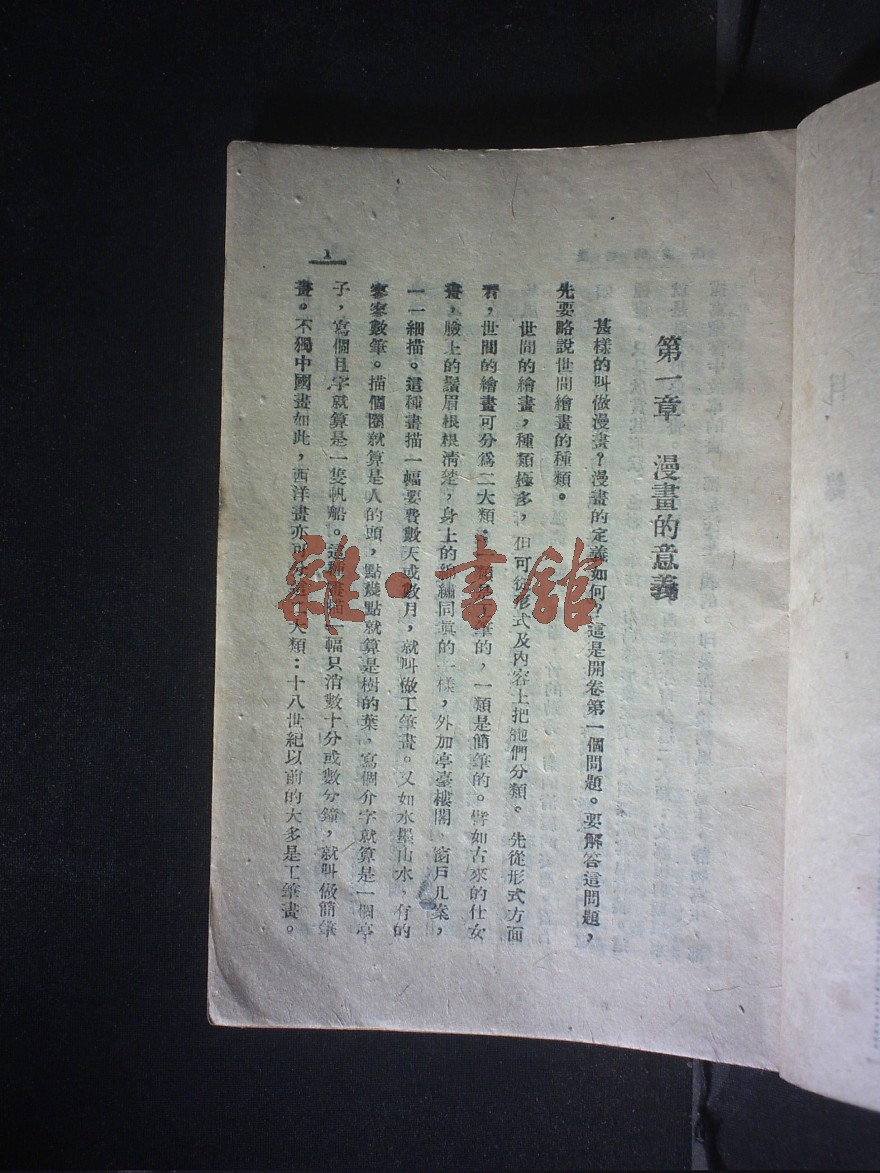 第一章　漫畫的意義
甚樣的叫做漫畫？漫畫的定義如何？這是開卷第一個問題。要解答這問題，
先要略說世間繪畫的種類。
世間的繪畫，種類極多，但可從形式及內容上把他們分類。先從形式方面
看，世間的繪畫可分爲二大類：一類是工筆的，一類是簡筆的。譬如古來的仕女
畫，臉上的鬚眉根根清楚，身上的錦繡同眞的一樣，外加亭臺樓閣，窗戶几案，
一一細描。這種畫描一幅要費數天或數月，就叫做工筆畫。又如水墨山水，有的
寥寥數筆。描個圈就算是人的頭，點幾點就算是樹的葉，寫個介字就算是一個亭
子，寫個且字就算是一隻帆船。這種畫描一幅只消數十分或數分鐘，就叫做簡筆
畫。不獨中國畫如此，西洋畫亦可分這二大類：十八世紀以前的大多是工筆畫。
1
雜·書館